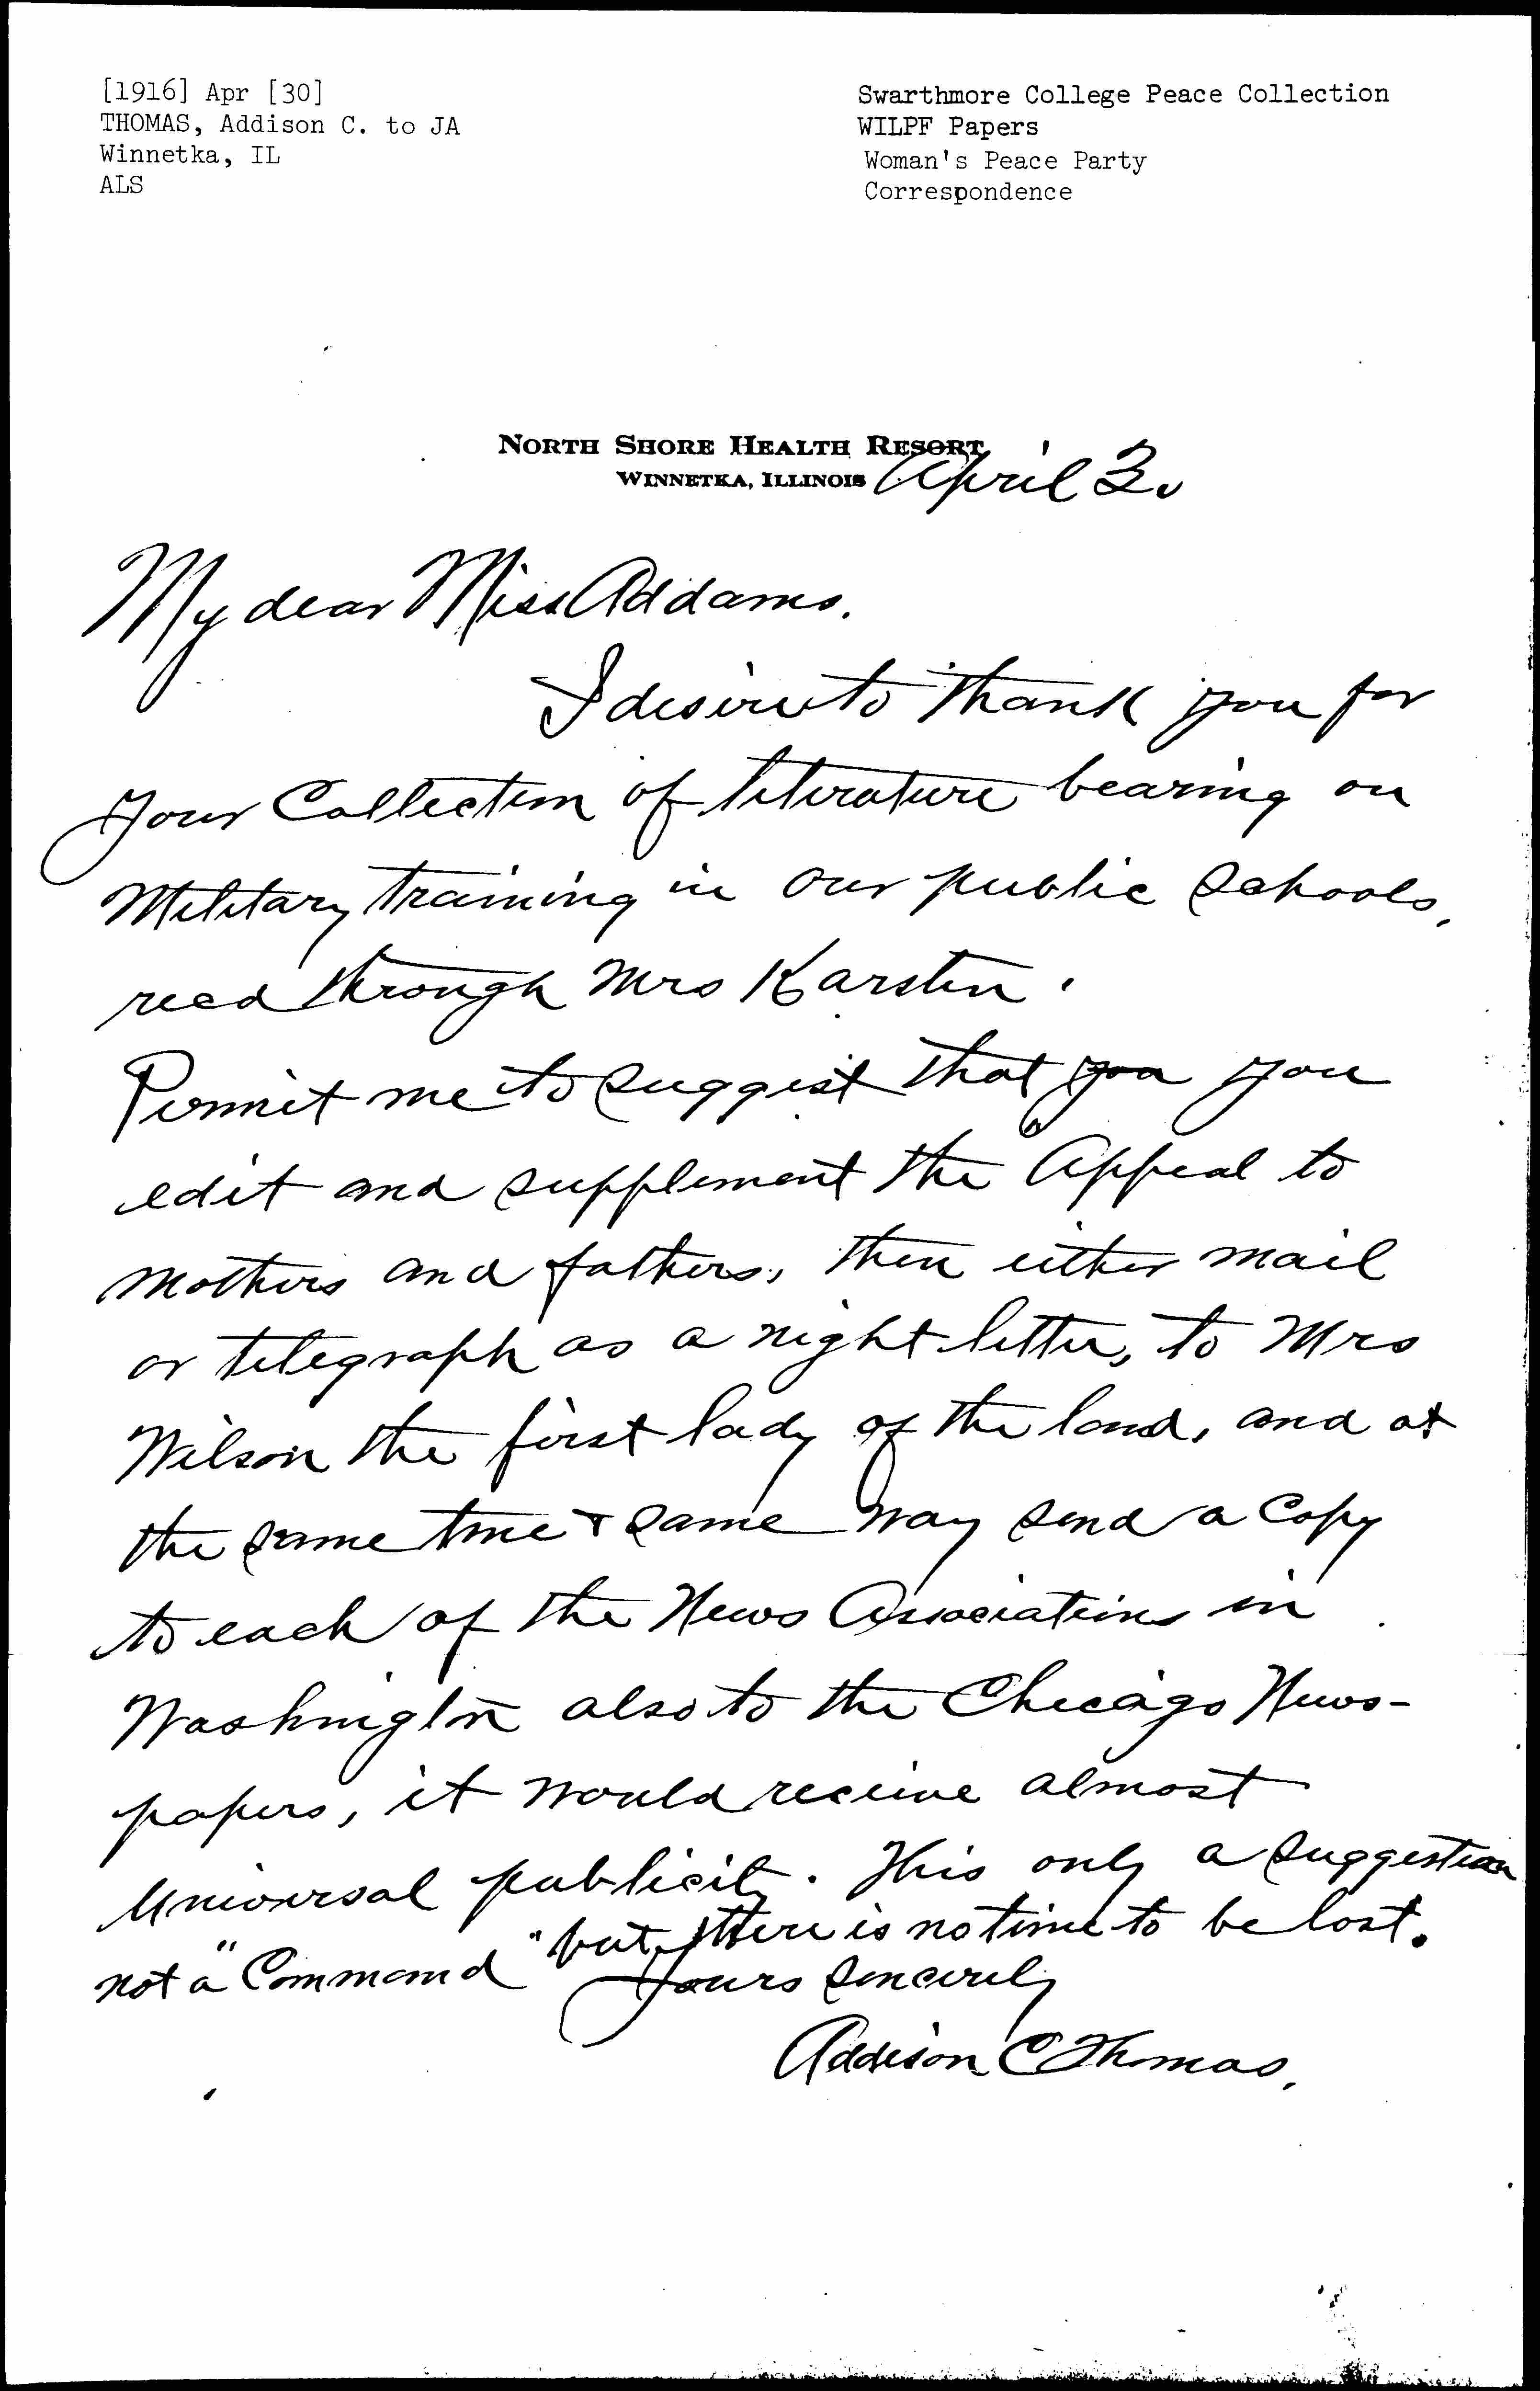 [1916] Apr [30]
THOMAS, Addison C. to JA
Winnetka, IL
ALS
Swarthmore College Peace Collection
WILPF Papers
Woman's Peace Party
Correspondence
NORTH SHORE HEALTH RESORT
WINNETKA, ILLINOIS April 30
My dear Miss Addams.
I desire to thank you for
your Collection of literature bearing on
Military training in our public Schools,
recd through Mrs Karsten.
Permit me to suggest that you you
edit and supplement the Appeal to
mothers and fathers, then either mail
or telegraph as a night letter, to Mrs
Wilson the first lady of the land, and at
the same time & same way send a Copy
to each of the News Associations in
Washington also to the Chicago News-
papers, it would receive almost
Universal publicity. This only a suggestion
not a "Command" but there is no time to be lost.
Yours Sincerely
Addison C Thomas.